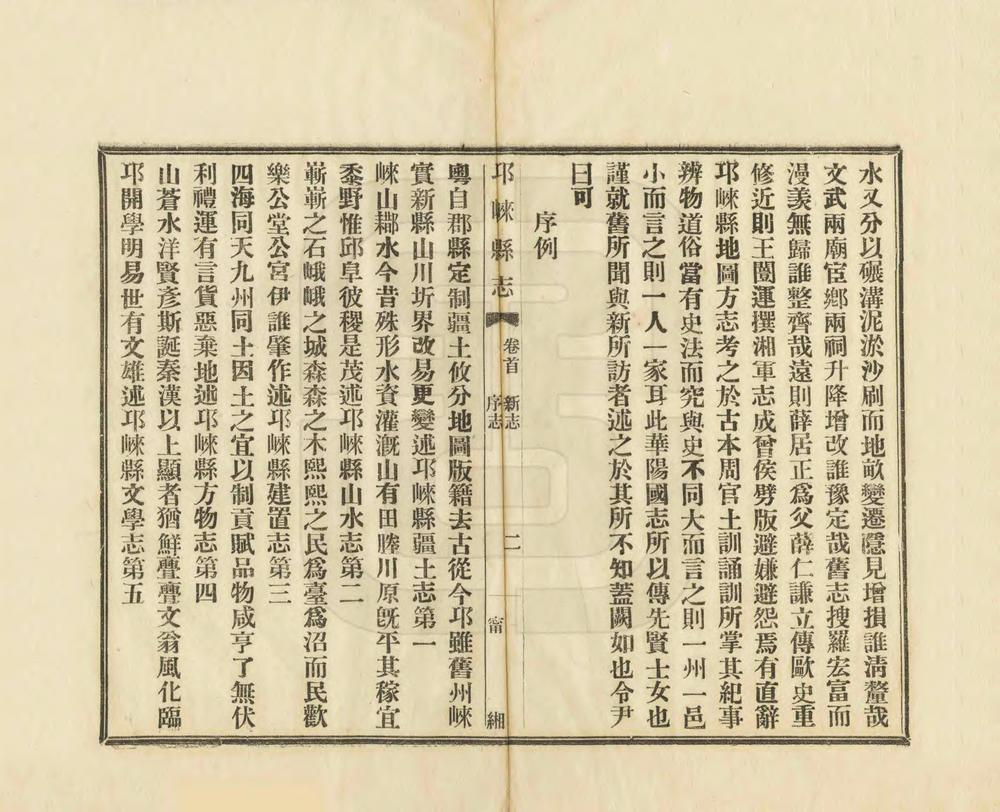 水又分以碾溝泥淤沙刷而地畝變遷隱見增損誰淸釐哉
文武兩廟宦鄉兩祠升降增改誰豫定哉舊志搜羅宏富而
漫羨無歸誰整齊哉遠則薛居正爲父薛仁謙立傳歐史重
修近則王闓運撰湘軍志成曾侯劈版避嫌避怨焉有直辭
邛崍縣地圖方志考之於古本周官土訓誦訓所掌其紀事
辨物道俗當有史法而究與史不同大而言之則一州一邑
小而言之則一人一家耳此華陽國志所以傳先賢士女也
謹就舊所聞與新所訪者述之於其所不知蓋闕如也令尹
曰可
序例
邛崍縣志
卷首
新志
序志
二
甯
緗
粵自郡縣定制疆土攸分地圖版籍去古從今邛雖舊州崍
實新縣山川圻界改易更變述邛崍縣疆土志第一
崍山鄰水今昔殊形水資灌漑山有田塍川原旣平其稼宜
黍野惟邱阜彼稷是茂述邛崍縣山水志第二
嶄嶄之石峨峨之城森森之木熙熙之民爲臺爲沼而民歡
樂公堂公宮伊誰肇作述邛崍縣建置志第三
四海同天九州同土因土之宜以制貢賦品物咸亨了無伏
利禮運有言貨惡棄地述邛崍縣方物志第四
山蒼水洋賢彥斯誕秦漢以上顯者猶鮮亹亹文翁風化臨
邛開學明易世有文雄述邛崍縣文學志第五